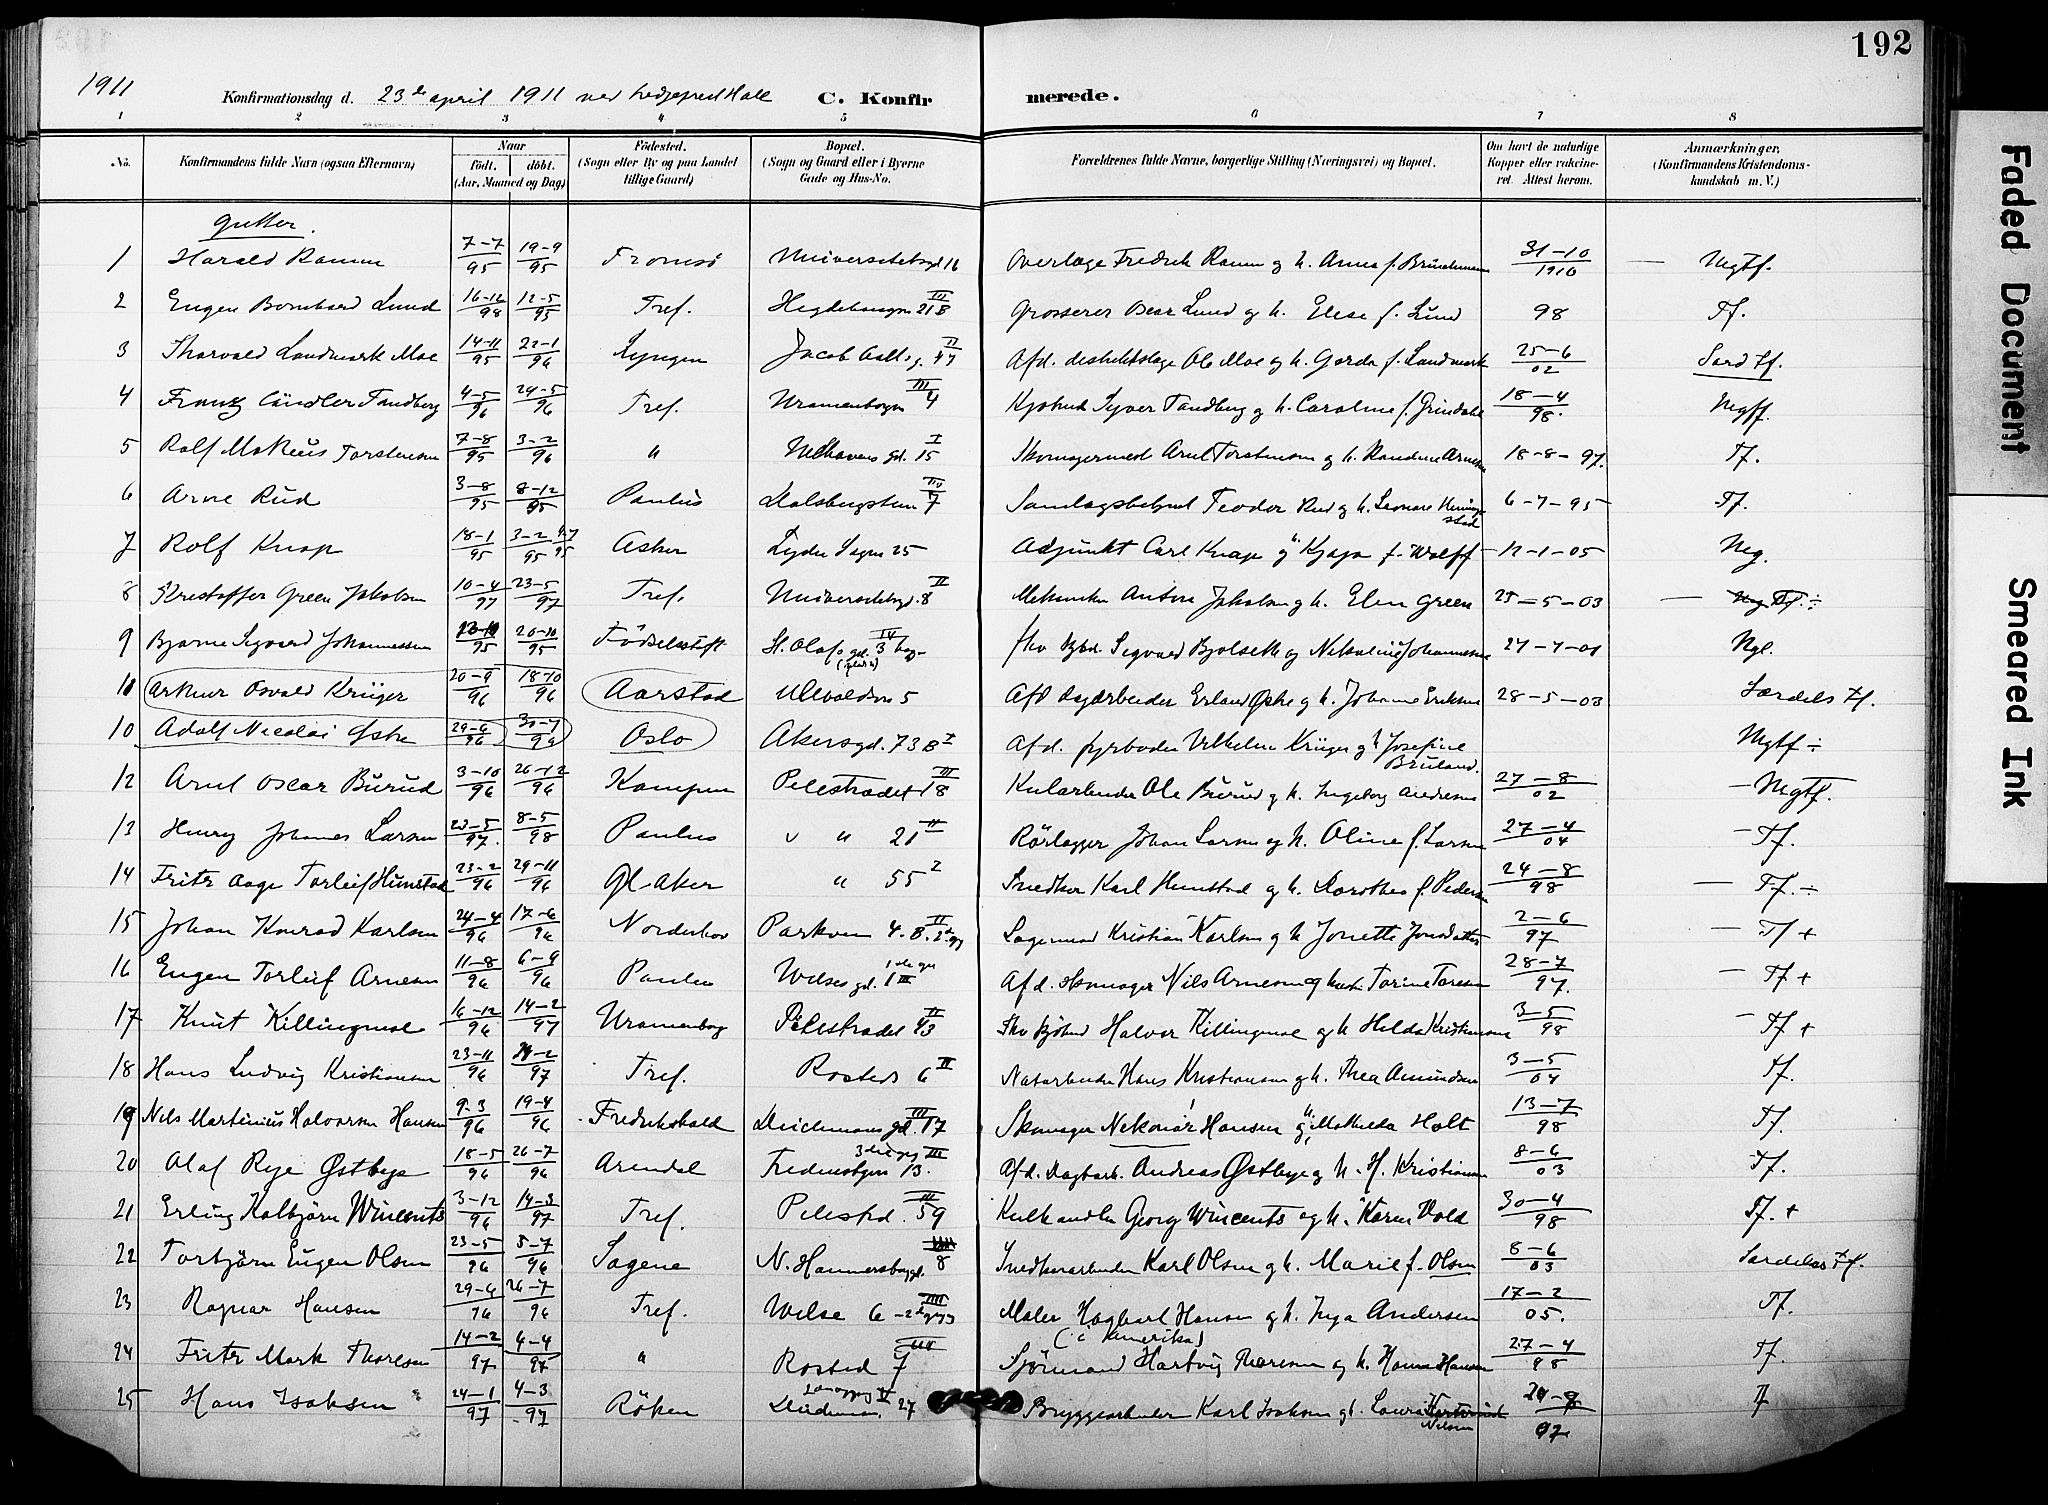 192
1911
Konfirmationsdag d. 23de april 1911 ved C. Konfirmerede.
1 2 3 4 5 6 7 8
No. Konfirmandens fulde Navn (ogsaa Efternavn). Naar født. døbt. (Aar, Maaned og Dag) Fødested. (Sogn eller By og paa Landet tillige Gaard) Bopæl. (Sogn og Gaard eller i Byerne Gade og Hus-No. Forældrenes fulde Navne, borgerlige Stilling (Næringsvei) og Bopæl. Om havt de naturlige Kopper eller vakcineret. Attest herom. Anmærkninger, (Konfirmandens Kristendomskundskab m. V.)
Gutter.
1 Harald Ramm 7-7/95 19-9/95 Tromsø Universitetsgd 16 Overlæge Fredrik Ramm g h. Anna f. 31-10/1910 — Mgtf.
2 Eugen Bernhard Lund 16-12/98 12-5/95 Tref. 21 B III Grosserer Oscar Lund og h. Elise f. Lund 98 Tf.
3 Thorvald Landmark Moe 14-11/95 22-1/96 Lyngen Jacob Aalls g. 47 II Afd. distriktslæge Ole Moe og h. Gerda f. Landmark 25-6/02 Særd tf.
4 Frantz Tandberg 4-5/96 24-5/96 Tref. Uranienborgvn 4 III Syver Tandberg g h. Caroline f. Grindahl 18-4/98. Mgtf.
5 Rolf Torstensen 7-8/95 3-2/96 " Welhavens gd. 15 I Skomagermest Arnt Torstensen og h. Randine Arnesen 18-8-97. Tf.
6 Arne Rud 3-8/95 8-12/95 Paulus Dalsbergstien 7 IIII Teodor Rud og h. Leonore 6-7-95 Tf.
7 Rolf Knap 18-1/95 3-2/95 Asker Lyder Sagens 25 Adjunkt Carl Knap g h. Kaja f. Wolff 12-1-05 Mg.
8 Kristoffer Green Jakobsen 10-4/97 23-5/97 Tref. Universitetsgd. 8 II Mekaniker Anton Jakobsen g h. Elen Green 25-5-03 — Tf. ÷
9 Bjarne Sigvard Johannessen 95 20-10/95 Fødselsstift St. Olafs gd. 3 IV Sigvard og Johannessen 27-7-01 Mgl.
11 Arthur Osvald Krüger 20-9/96 18-10/96 Aarstad Ullevoldsvn 5 Afd dagarbeider Erland Østre g h. Johanne Eriksen 28-5-03 Særdels tf.
10 Adolf Nicolai Østre 29-6/96 30-7/96 Oslo Akersgd. 73 B I Afd. fyrbøder Vilhelm Krüger g h Josefine Bruland. Mgtf ÷
12 Arnt Oscar Burud 3-10/96 26-12/96 Kampen Pilestrædet 18 III Kularbeider Ole Burud g h. Ingeborg Andresen 27-8/02 — Mgtf.
13 Henry Johannes Larsen 23-5/97. 8-5/98 Paulus " " 21 II Rørlægger Johan Larsen og h. Oline f. Larsen 27-4/04 — Tf.
14 Fritz Aage Torleif Hunstad 23-2/96 29-11/96 Gl. Aker " 55 2 Snedker Karl Hunstad og h. Dorothea f. Pedersen 24-8/98 — Tf. ÷
15 Johan Konrad Karlsen 24-4/96 17-6/96 Norderhov Parkven 4. B. II Kristian Karlsen g h Jonette Jonsdatter 2-6/97 — Tf +
16 Eugen Torleif Arnesen 11-8/96 6-9/96 Paulus Wilses gd. 1 III Afd. skomager Nils Arnesen og hust. Torine Toresen 28-7/97. — Tf +
17 Knut Killingmoe 16-12/96 14-2/97 Uranienborg Pilestrædet 43 II Halvor Killingmoe og h Hilda Kristiansen 3-5/98 — Tf +
18 Hans Ludvig Kristiansen 23-11/96 -2/97 Tref. Rosteds 6 II Hans Kristiansen g h. Thea Amundsen 3-5/04 Tf.
19 Nils Martinius Halvorsen Hansen 9-3/96 19-4/96 Fredrikshald Deichmans gd. 17 III Skomager Hansen g h. Mathilda Holt 13-7/98 Tf.
20 Olaf Rye Østbye 18-5/96 26-7/96 Arendal Fredensborgvn 13. III Afd. Dagbarb. Andreas Østbye g h. H. Kristiansen 8-6/03 Tf.
21 Erling Kolbjørn Wincents 3-12/96 14-3/97 Tref. Pilestrd. 59 III Kulhandler Georg Wincents og h. Karen Vold 30-4/98 Tf. +
22 Torbjørn Eugen Olsen 23-5/96 5-7/96 Sagene N. Hammersborggd. 8 Snedkerarbeider Karl Olsen g h. Marie f. Olsen 8-6/03 Særdeles tf.
23 Ragnar Hansen 29-6/96 26-7/96 Tref. Wilse 6 IIII Maler Hagbart Hansen og h. Inga Andersen (i Amerika) 17-2/05. Tf.
24 Fritz Mark Thoresen 14-2/97 4-4/97 " Rosted 7 III Sjømand Hartvig Thoresen og h. Hanna Hansen 27-4/98 Tf.
25 Hans Isaksen 24-1/97 4-3/97 Røken Deichman. 27 V Bryggearbeider Karl Isaksen g h. Laura Nilsen 97 Tf
Faded Document
Smeared Ink